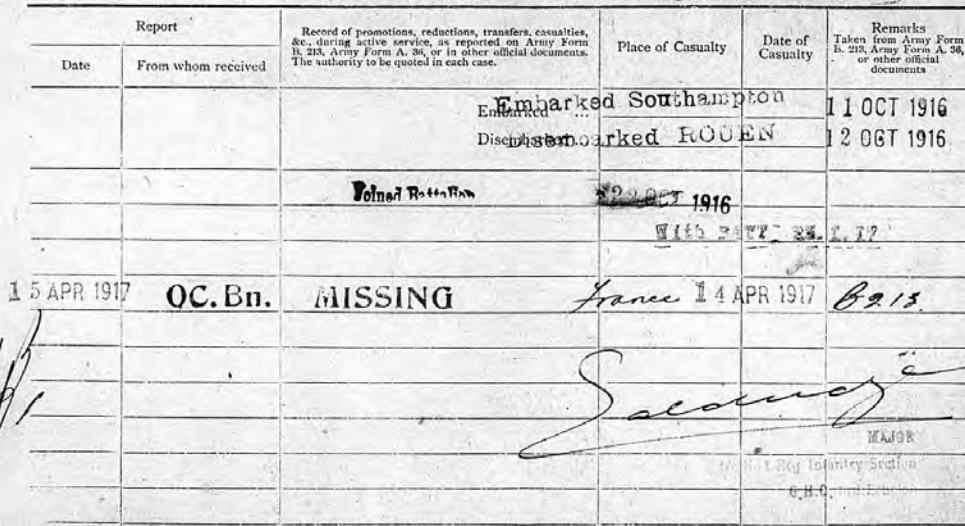 Report
Record of promotions, reductions, transfers, casualties,
&c., during active service, as reported on Army Form
B. 213, Army Form A. 36, or in other official documents.
The authority to be quoted in each case.
Place of Casualty
Date of
Casualty
Remarks
Taken from Army Form
B. 213, Army Form A. 36,
or other official
documents
Date
From whom received
Embarked ...
Embarked Southampton
11 OCT 1916
Disembarked
Disembarked ROUEN
12 OCT 1916
Joined Battalion
22 OCT 1916
With
15 APR 1917
OC. Bn.
MISSING
France
14 APR 1917
B213.
MAJOR
Infantry Section
G.H.Q.